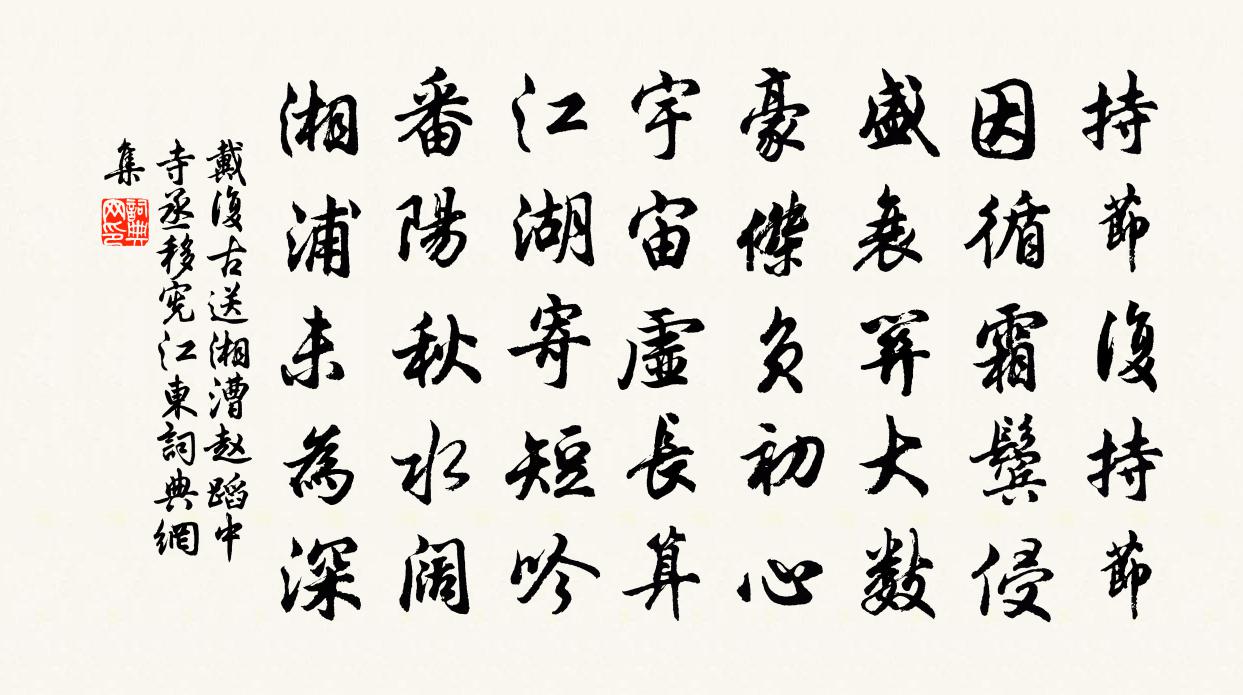 持節復持節
因循霜鬓侵
盛衰関大數
豪傑負初心
宇宙虛長算
江湖寄短吟
番陽秋水阔
湘浦未為深
戴復古送湘漕赵蹈中
寺丞移宪江東詞典網
集
詞典網印